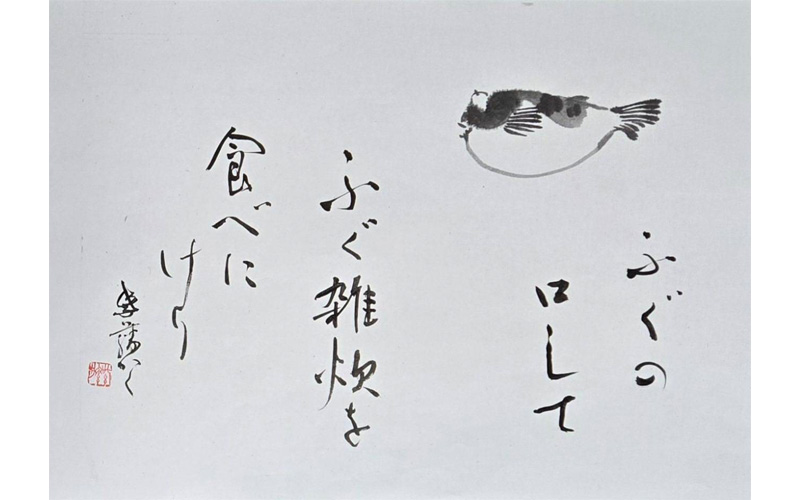 ふぐの
口して
ふぐ雑炊を
食べに
けり